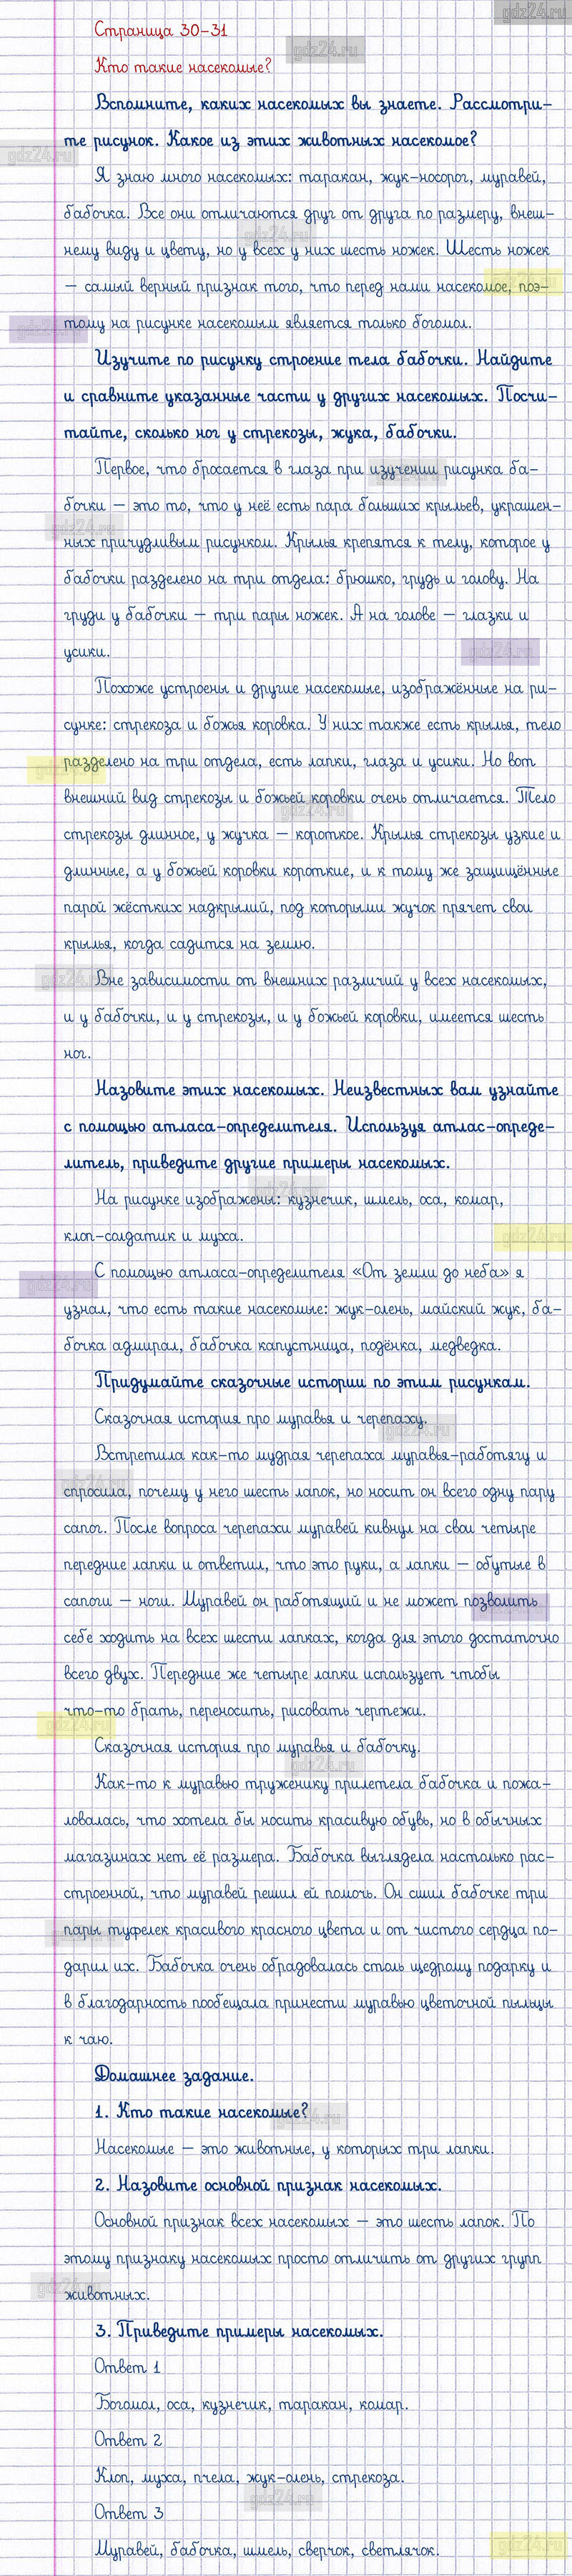 gdz24.ru
Страница 30-31
gdz24.ru
Кто такие насекомые?
Вспомните, каких насекомых вы знаете. Рассмотри-
те рисунок. Какое из этих животных насекомое?
gdz24.ru
Я знаю много насекомых: таракан, жук-носорог, муравей,
бабочка. Все они отличаются друг от друга по размеру, внеш-
gdz24.ru
нему виду и цвету, но у всех у них шесть ножек. Шесть ножек
gdz24.ru
— самый верный признак того, что перед нами насекомое, поэ-
gdz24.ru
тому на рисунке насекомым является только богомол.
Изучите по рисунку строение тела бабочки. Найдите
и сравните указанные части у других насекомых. Посчи-
тайте, сколько ног у стрекозы, жука, бабочки.
Первое, что бросается в глаза при изучении рисунка ба-
gdz24.ru
бочки — это то, что у неё есть пара больших крыльев, украшен-
gdz24.ru
ных причудливым рисунком. Крылья крепятся к телу, которое у
бабочки разделено на три отдела: брюшко, грудь и голову. На
груди у бабочки — три пары ножек. А на голове — глазки и
усики.
gdz24.ru
Похоже устроены и другие насекомые, изображённые на ри-
сунке: стрекоза и божья коровка. У них также есть крылья, тело
разделено на три отдела, есть лапки, глаза и усики. Но вот
gdz24.ru
внешний вид стрекозы и божьей коровки очень отличается. Тело
gdz24.ru
стрекозы длинное, у жучка — короткое. Крылья стрекозы узкие и
длинные, а у божьей коровки короткие, и к тому же защищённые
парой жёстких надкрылий, под которыми жучок прячет свои
крылья, когда садится на землю.
gdz24.ru
Вне зависимости от внешних различий у всех насекомых,
и у бабочки, и у стрекозы, и у божьей коровки, имеется шесть
ног.
Назовите этих насекомых. Неизвестных вам узнайте
с помощью атласа-определителя. Используя атлас-опреде-
литель, приведите другие примеры насекомых.
gdz24.ru
На рисунке изображены: кузнечик, шмель, оса, комар,
клоп-солдатик и муха.
gdz24.ru
С помощью атласа-определителя «От земли до неба» я
gdz24.ru
узнал, что есть такие насекомые: жук-олень, майский жук, ба-
бочка адмирал, бабочка капустница, подёнка, медведка.
Придумайте сказочные истории по этим рисункам.
Сказочная история про муравья и черепаху.
gdz24.ru
Встретила как-то мудрая черепаха муравья-работягу и
gdz24.ru
спросила, почему у него шесть лапок, но носит он всего одну пару
сапог. После вопроса черепахи муравей кивнул на свои четыре
передние лапки и ответил, что это руки, а лапки — обутые в
сапоги — ноги. Муравей он работящий и не может позволить
gdz24.ru
себе ходить на всех шести лапках, когда для этого достаточно
всего двух. Передние же четыре лапки использует чтобы
что-то брать, переносить, рисовать чертежи.
gdz24.ru
Сказочная история про муравья и бабочку.
gdz24.ru
Как-то к муравью труженику прилетела бабочка и пожа-
ловалась, что хотела бы носить красивую обувь, но в обычных
магазинах нет её размера. Бабочка выглядела настолько рас-
строенной, что муравей решил ей помочь. Он сшил бабочке три
пары туфелек красивого красного цвета и от чистого сердца по-
gdz24.ru
дарил их. Бабочка очень обрадовалась столь щедрому подарку и
в благодарность пообещала принести муравью цветочной пыльцы
к чаю.
Домашнее задание.
1. Кто такие насекомые?
gdz24.ru
Насекомые — это животные, у которых три лапки.
2. Назовите основной признак насекомых.
Основной признак всех насекомых — это шесть лапок. По
этому признаку насекомых просто отличить от других групп
gdz24.ru
животных.
3. Приведите примеры насекомых.
Ответ 1
Богомол, оса, кузнечик, таракан, комар.
Ответ 2
Клоп, муха, пчела, жук-олень, стрекоза.
gdz24.ru
Ответ 3
Муравей, бабочка, шмель, сверчок, светлячок.
gdz24.ru